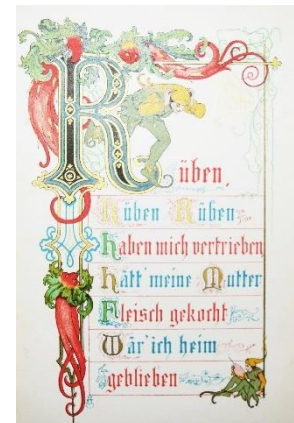 Rüben,
Rüben Rüben
haben mich vertrieben
hätt' meine Mutter
Fleisch gekocht
Wär' ich heim
geblieben